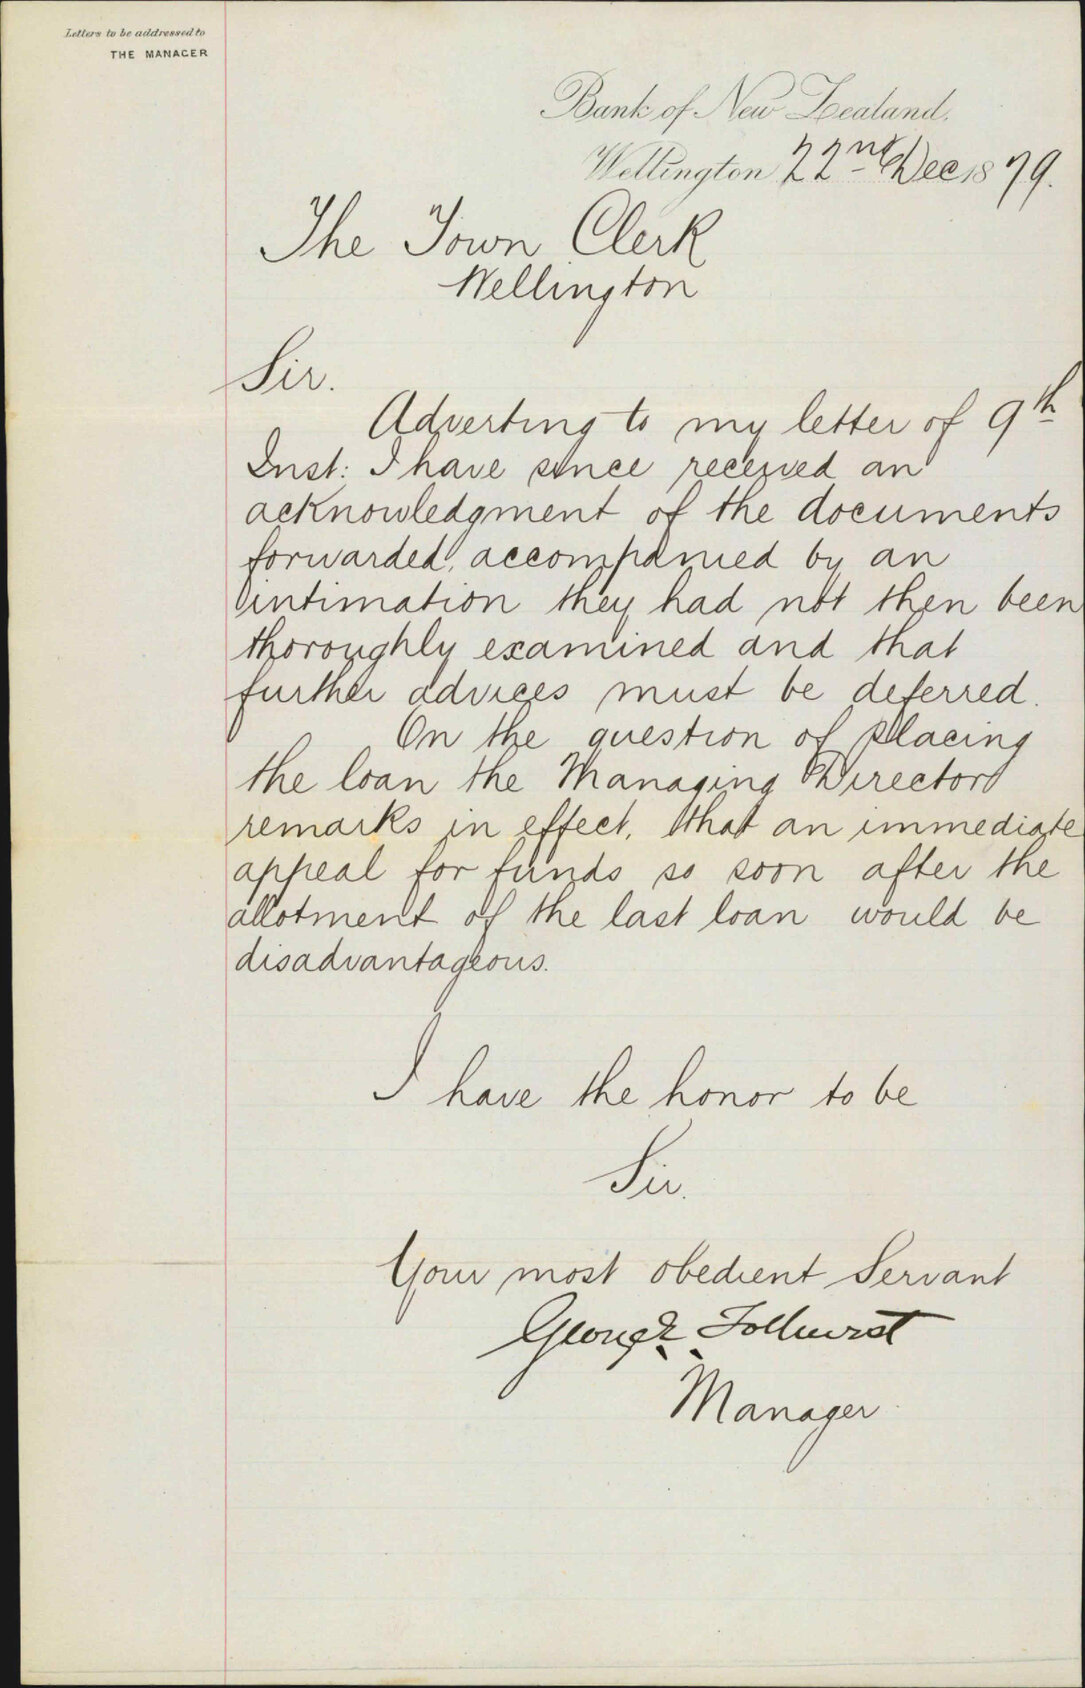 Letters to be addressed to
THE MANAGER
Bank of New Zealand,
Wellington 22nd Dec 1879.
The Town Clerk
Wellington
Sir.
Adverting to my letter of 9th
Inst: I have since received an
acknowledgment of the documents
forwarded, accompanied by an
intimation they had not then been
thoroughly examined and that
further advices must be deferred.
On the question of placing
the loan the Managing Director
remarks in effect, that an immediate
appeal for funds so soon after the
allotment of the last loan would be
disadvantageous.
I have the honor to be
Sir.
Your most obedient Servant
George Tolhurst
Manager